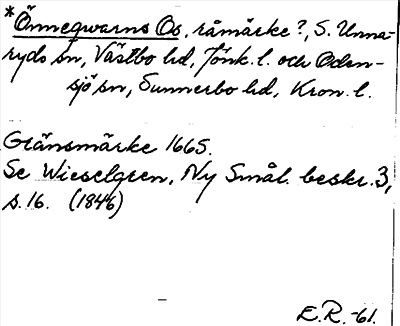 *Önneqwarns Os, råmärke?, S. Unna-
ryds sn, Västbo hd, Jönk. l. och Oden-
sjö sn, Sunnerbo hd, Kron. l.
Gränsmärke 1665.
Se Wieselgren, Ny Smål. beskr. 3,
s. 16. (1846)
E.R.-61.